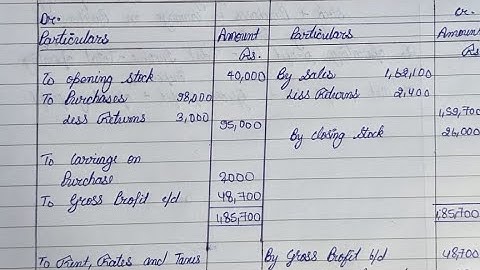 Dr. Cr.
Particulars Amount Particulars Amount
Rs. Rs
To opening stock 40,000 By Sales 1,62,100
To Purchases 98,000 Less Returns 2,400
Less Returns 3,000 1,59,700
95,000 By closing stock 26,000
To Carriage on
Purchase 2000
To Gross Profit c/d 48,700
1,85,700 1,85,700
To Rent, Rates and Taxes By Gross Profit b/d 48,700